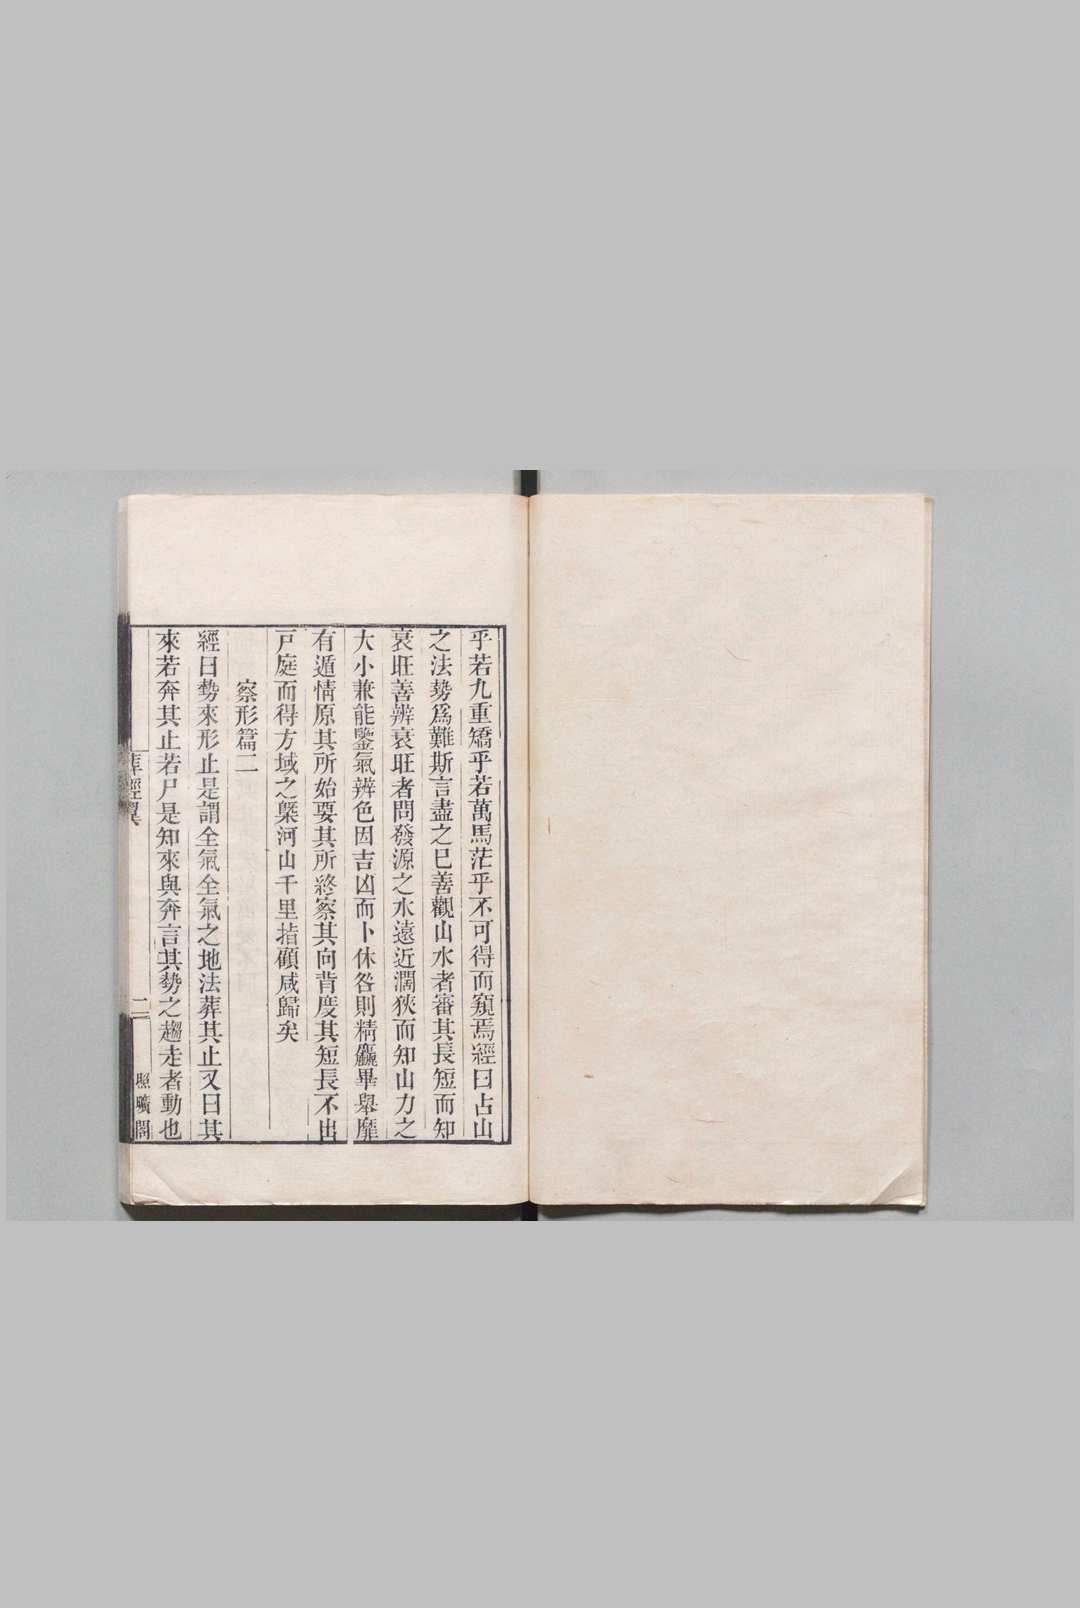 乎若九重矯乎若萬馬茫乎不可得而窺焉經曰占山
之法勢爲難斯言盡之巳善觀山水者審其長短而知
衰旺善辨衰旺者問發源之水遠近濶狹而知山力之
大小兼能鑒氣辨色因吉凶而卜休咎則精麤畢舉靡
有遁情原其所始要其所終察其向背度其短長不出
戸庭而得方域之槩河山千里指顧咸歸矣
察形篇二
經曰勢來形止是謂全氣全氣之地法葬其止又曰其
來若奔其止若尸是知來與奔言其勢之趨走者動也
葬經翼
二
照曠閣